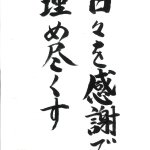 日々を感謝で
埋め尽くす